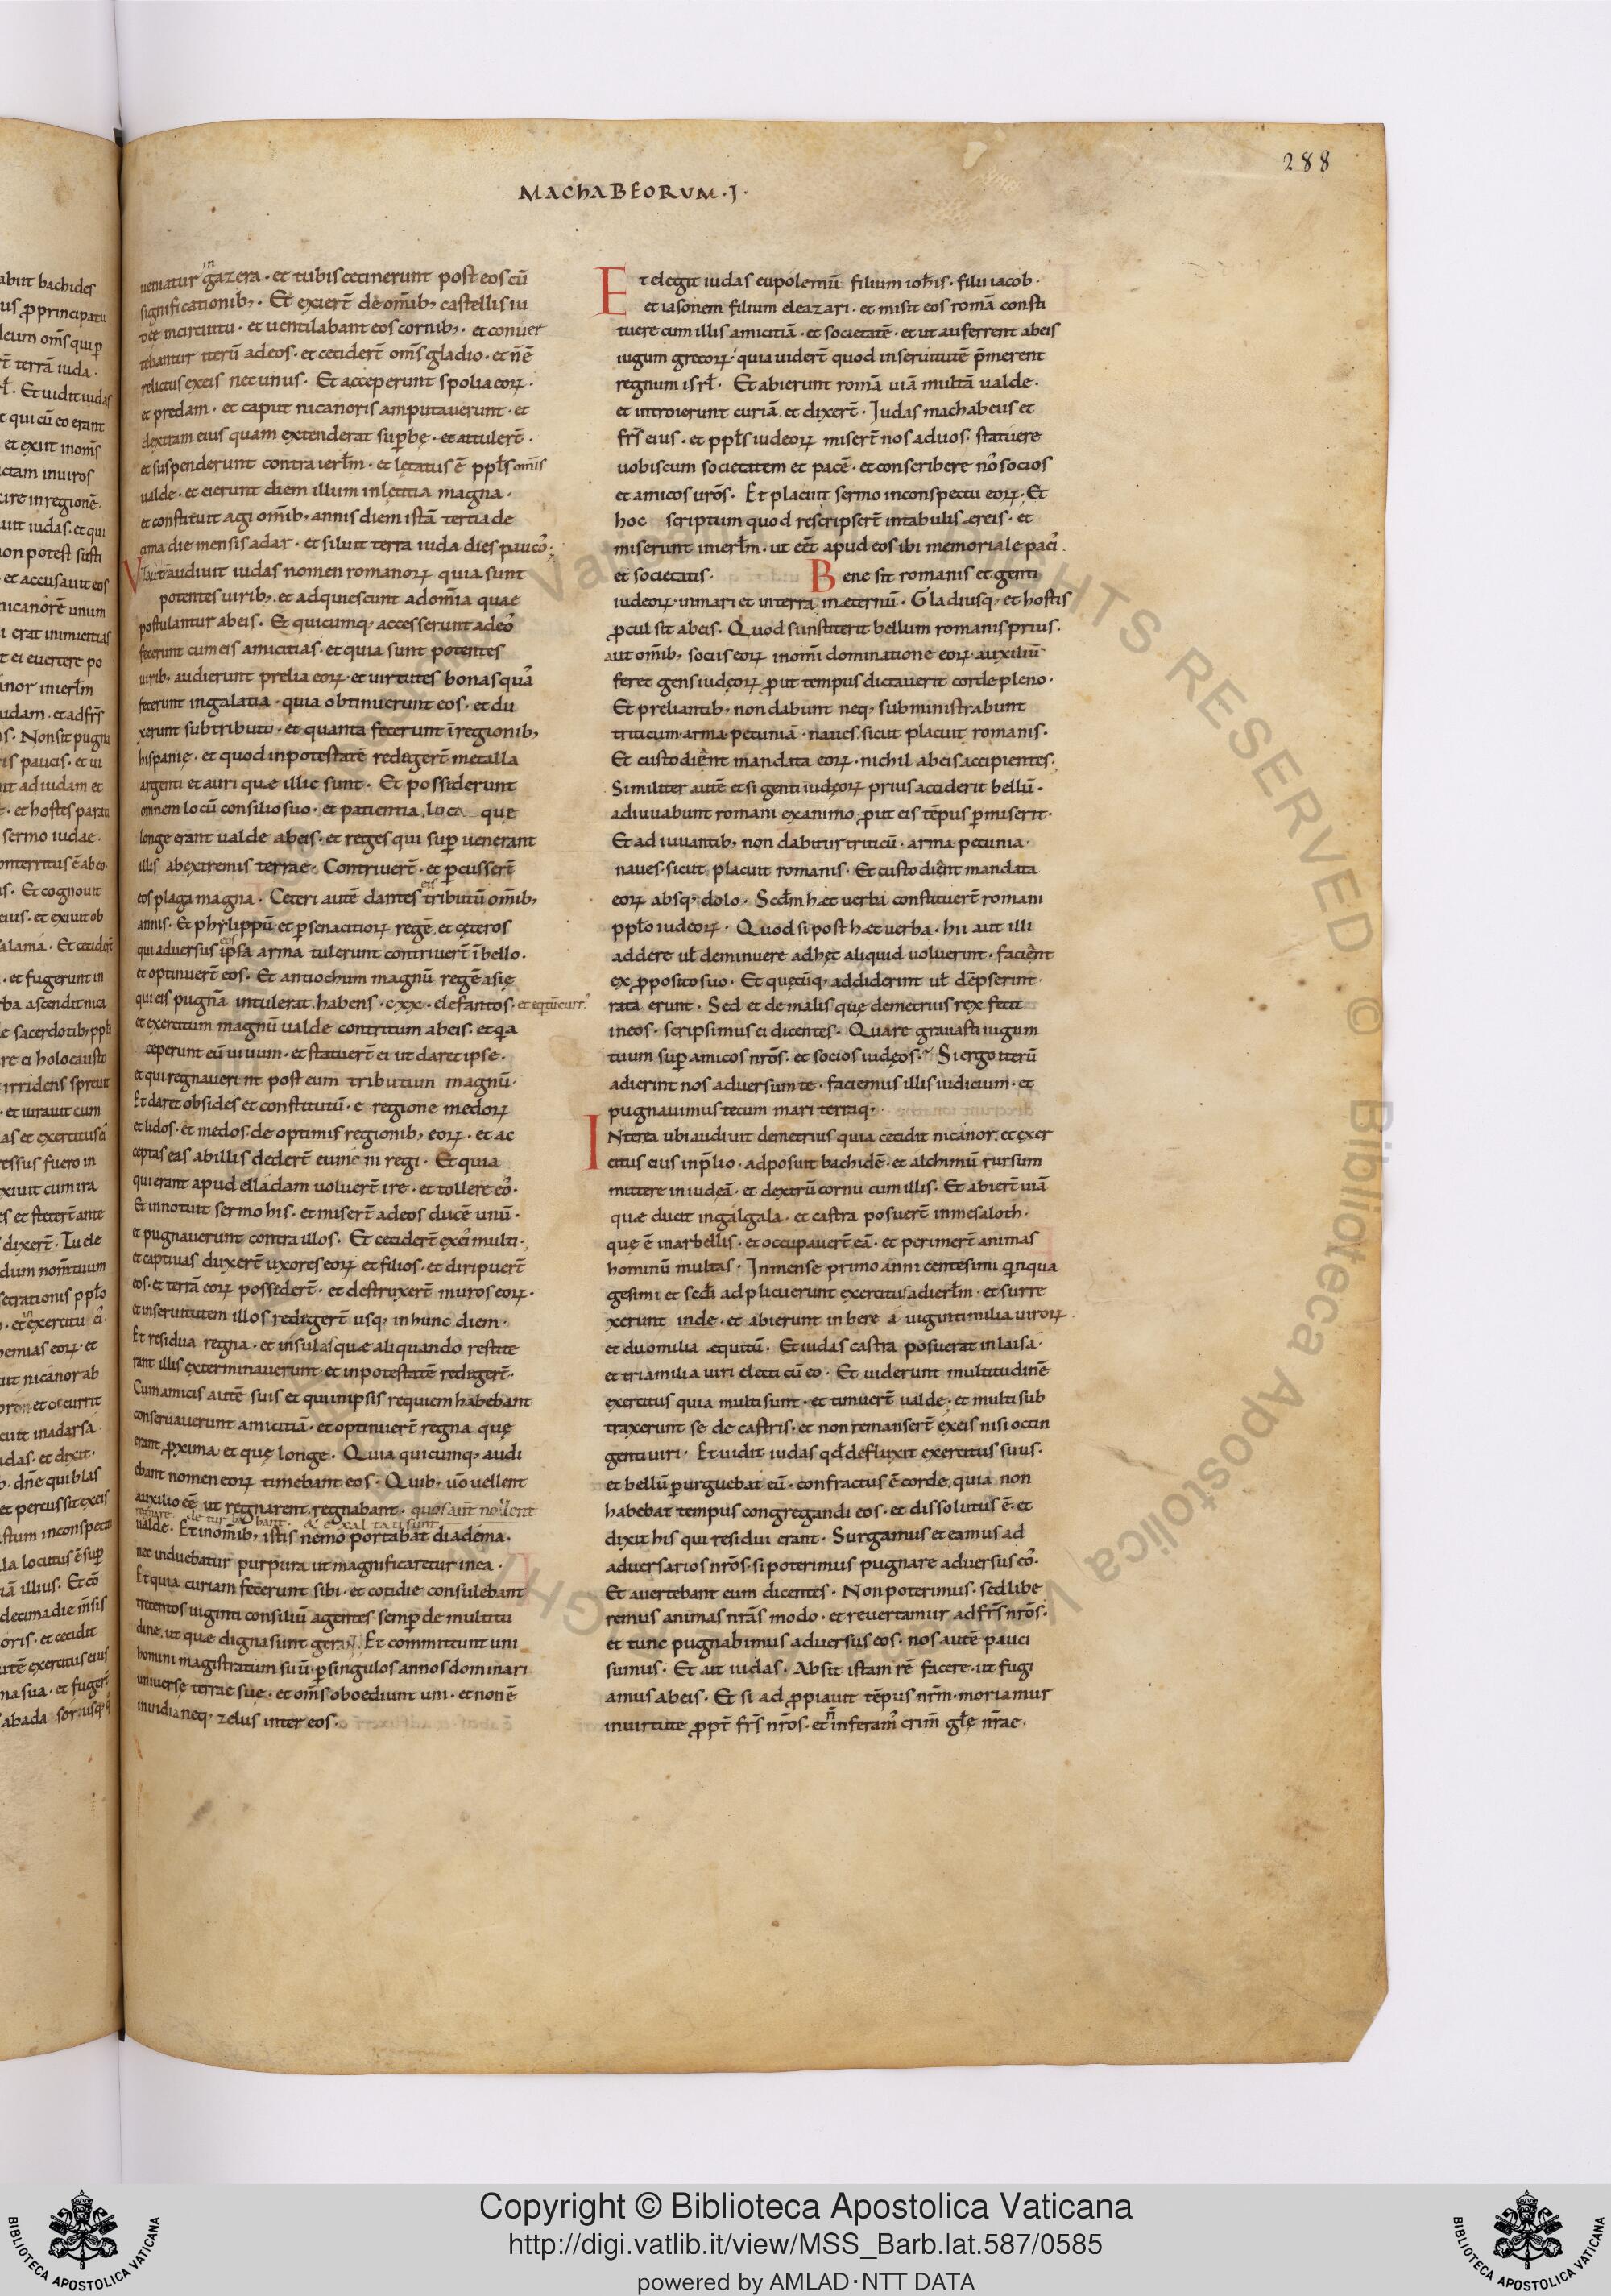 288
MACHABEORUM·I·
ueniatur in gazera · et tubis cecinerunt post eos cū
significationib; · Et exiert̄ de om̄ib; castellis iu
deę incircuitu · et uentilabant eos cornib; · et conuer
tebantur iterū adeos · et cecidert̄ om̄s gladio · et n̄ ē
relictus exeis nec unus · Et acceperunt spolia eoꝝ ·
et predam · et caput nicanoris amputauerunt · et
dextram eius quam extenderat sup̄bę · et attulert̄ ·
et suspenderunt contra ierł̄m · et lętatus ē ppłs om̄is
ualde · et egerunt diem illum inlętitia magna ·
et constituit agi om̄ib; annis diem istā tertiade
cima die mensis adar · et siluit terra iuda dies paucoˢ ·
audiuit iudas nomen romanoꝝ quia sunt
potentes uirib; · et adquiescunt adom̄ia quae
postulantur abeis · Et quicumq; accesserunt adeoˢ
fecerunt cum eis amicitias · et quia sunt potentes
uirib; audierunt prelia eoꝝ · et uirtutes bonas quaˢ
fecerunt ingalatia · quia obtinuerunt eos · et du
xerunt subtributū · et quanta fecerunt ī regionib;
hispanie · et quod inpotestatē redigert̄ metalla
argenti et auri quæ illic sunt · Et possiderunt
omnem locū consilio suo · et patientia · loca que
longe erant ualde abeis · et reges qui sup̄ uenerant
illis abextremis terrae · Contriuert̄ · et p̄cussert̄
eos plaga magna · Ceteri autē dantes eis tributū om̄ib;
annis · Et phylippū et p̄sen acitioꝝ regē · et ceteros
qui aduersus eos ipsa arma tulerunt contriuert̄ ī bello ·
et optinuert̄ eos · Et antiochum magnū regē asię
qui eis pugnā intulerat habens · cxx · elefantos · et eqtū curr̄
et exercitum magnū ualde contritum abeis · et q̄a
ceperunt eū uiuum · et statuert̄ ei ut daret ipse ·
et qui regnauerint post eum tributum magnū ·
Et daret obsides et constitutū · e regione medoꝝ
et lidos · et medos · de optimis regionib; eoꝝ · et ac
ceptas eas abillis dedert̄ eumeni regi · Et quia
qui erant apud elladam uoluert̄ ire · et tollere eoˢ ·
Et innotuit sermo his · et misert̄ adeos ducē unū ·
et pugnauerunt contra illos · Et ceciderт̄ ex eiˢ multi ·
et captiuas duxert̄ uxores eoꝝ et filios · et diripuert̄
eos · et terrā eoꝝ possidert̄ · et destruxert̄ muros eoꝝ ·
et inseruitutem illos redigert̄ usq; in hunc diem ·
Et residua regna · et insulas quæ aliquando restite
rant illis exterminauerunt et inpotestatē redigert̄ ·
Cum amicis autē suis et qui inipsis requiem habebant
conseruauerunt amicitiā · et optinuert̄ regna quę
erant p̄xima et quę longe · Quia quicumq; audi
ebant nomen eoꝝ timebant eos · Quib; uo uellent
auxilio eē ut regnarent · regnabant · quos aūt nollent
regnare deturbabant · & exaltati sunt
ualde · Et inom̄ib; istis nemo portabat diadema ·
nec induebatur purpura ut magnificaretur in ea ·
Et quia curiam fecerunt sibi · et cotidie consulebant
trecentos uiginti consiliū agentes semp̄ de multitu
dine · ut quæ digna sunt gerant · Et committunt uni
homini magistratum suū · p̄singulos annos dominari
uniuersę terrae suę · et om̄s oboediunt uni · et non ē
inuidia neq; zelus inter eos ·
Et elegit iudas eupolemū filium iohīs · filii iacob ·
et iasonem filium eleazari · et misit eos romā consti
tuere cum illis amicitiā · et societatē · et ut auferrent abeis
iugum grecoꝝ · quia uidert̄ quod inseruitutē p̄merent
regnum isrł · Et abierunt romā uiā multā ualde ·
et introierunt curiā · et dixert̄ · Iudas machabeus et
fr̄s eius · et ppłs iudeoꝝ misert̄ nos aduos · statuere
uobiscum societatem et pacē · et conscribere noˢ socios
et amicos ur̄os · Et placuit sermo inconspectu eoꝝ · Et
hoc scriptum quod rescripsert̄ intabulis ereis · et
miserunt inierł̄m · ut eēt apud eos ibi memoriale paciˢ ·
et societatis · Bene sit romanis et genti
iudeoꝝ · inmari et interra inæternū · Gladiusq; et hostis
p̄cul sit abeis · Quod si institerit bellum romanis prius ·
aut om̄ib; sociis eoꝝ inom̄i dominatione eoꝝ · auxiliū
feret gens iudęoꝝ p̄ut tempus dictauerit corde pleno ·
Et preliantib; non dabunt neq; subministrabunt
triticum · arma · pecuniā · naues · sicut placuit romanis ·
Et custodient mandata eoꝝ · nichil abeis accipientes ·
Similiter autē et si genti iudęoꝝ prius acciderit bellū ·
adiuuabunt romani exanimo p̄ut eis tēpus p̄miserit ·
Et adiuuantib; non dabitur triticū · arma · pecunia ·
naues · sicut placuit romanis · Et custodient mandata
eoꝝ absq; dolo · Scd̄m hæc uerba constituert̄ romani
ppło iudeoꝝ · Quod si post hæc uerba · hii aut illi
addere uł deminuere adhęc aliquid uoluerint · facient
ex p̄posito suo · Et quęcūq; addiderint uł dēpserint ·
rata erunt · Sed et de malis quę demetrius rex fecit
ineos · scripsimus ei dicentes · Quare grauasti iugum
tuum sup̄ amicos nr̄os · et socios iudęos · Si ergo iterū
adierint nos aduersum te · faciemus illis iudicium · et
pugnauimus tecum mari terraq; ·
INterea ubi audiuit demetrius quia cecidit nicanor · et exer
citus eius inp̄lio · adposuit bachidē · et alchimū rursum
mittere iniudęā · et dextrū cornu cum illis · Et abiert̄ uiā
quæ ducit ingalgala · et castra posuert̄ inmesaloth ·
quę ē inarbellis · et occupauert̄ eā · et perimert̄ animas
hominū multas · Inmense primo anni centesimi q̄nqua
gesimi et scd̄i adplicuerunt exercitū adierł̄m · et surre
xerunt inde · et abierunt in berea uiginti milia uiroꝝ ·
et duomilia æquitū · Et iudas castra posuerat inlaisa ·
et triamilia uiri electi cū eo · Et uiderunt multitudinē
exercitus quia multi sunt · et timuert̄ ualde · et multi sub
traxerunt se de castris · et non remansert̄ exeis nisi octin
genti uiri · Et uidit iudas qd̄ defluxit exercitus suus ·
et bellū p̄urguebat eū · confractus ē corde · quia non
habebat tempus congregandi eos · et dissolutus ē · et
dixit his qui residui erant · Surgamus et eamus ad
aduersarios nr̄os · si poterimus pugnare aduersus eoˢ ·
Et auertebant eum dicentes · Non poterimus · sed libe
remus animas nr̄as modo · et reuertamur adfr̄s nr̄os ·
et tunc pugnabimus aduersus eos · nos autē pauci
sumus · Et ait iudas · Absit istam rē facere · ut fugi
amus abeis · Et si adp̄piauit tēpus nr̄m · moriamur
inuirtute p̄pt̄ fr̄s nr̄os · et n̄ inferamˢ crim̄ głę nr̄ae ·
Vaticana
RIGHTS RESERVED © Biblioteca Apostolica Vaticana
Copyright © Biblioteca Apostolica Vaticana
http://digi.vatlib.it/view/MSS_Barb.lat.587/0585
powered by AMLAD·NTT DATA
BIBLIOTECA APOSTOLICA VATICANA
BIBLIOTECA APOSTOLICA VATICANA